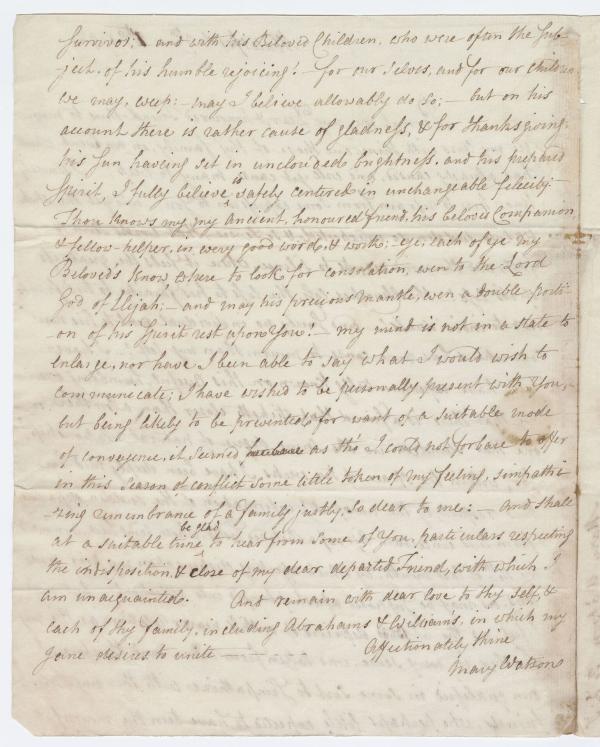 Survivos; and with his Beloved Children, who were often the sub-
ject, of his humble rejoicing! - for our selves, and for our children
we may, weep: - may I believe allowably do so; - but on his
account there is rather cause of gladness, & for thanksgiving:
his sun having set in unclouded brightness, and his prepared
Spirit, I fully believe is safely centered in unchangeable felicity -
Thou knows my, my ancient, honoured friend, his beloved Companion,
& fellow-helper, in every good word, & work: - eye, each of eye my
Beloved's know where to look for consolation, even to the Lord
God of Elijah; - and may his precious mantle, even a double porti-
on of his Spirit rest upon You! - my mind is not in a state to
enlarge, nor have I been able to say what I would wish to
communicate; I have wished to be personally present with You,
but being likely to be prevented for want of a suitable mode
of conveyence, it seemed as tho' I could not forbare to offer
in this season of conflict some little token of my feeling, simpathi-
zing remembrance of a family justly, so dear to me: - And shall
at a suitable time be glad to hear from some of You, particulars respecting
the indisposition, & close of my dear departed Friend, with which I
am unacquainted. And remain with dear love to thy self, &
each of thy family, including Abrahams & William's, in which my
Jane desires to unite -
Affectionately thine
Mary Watson